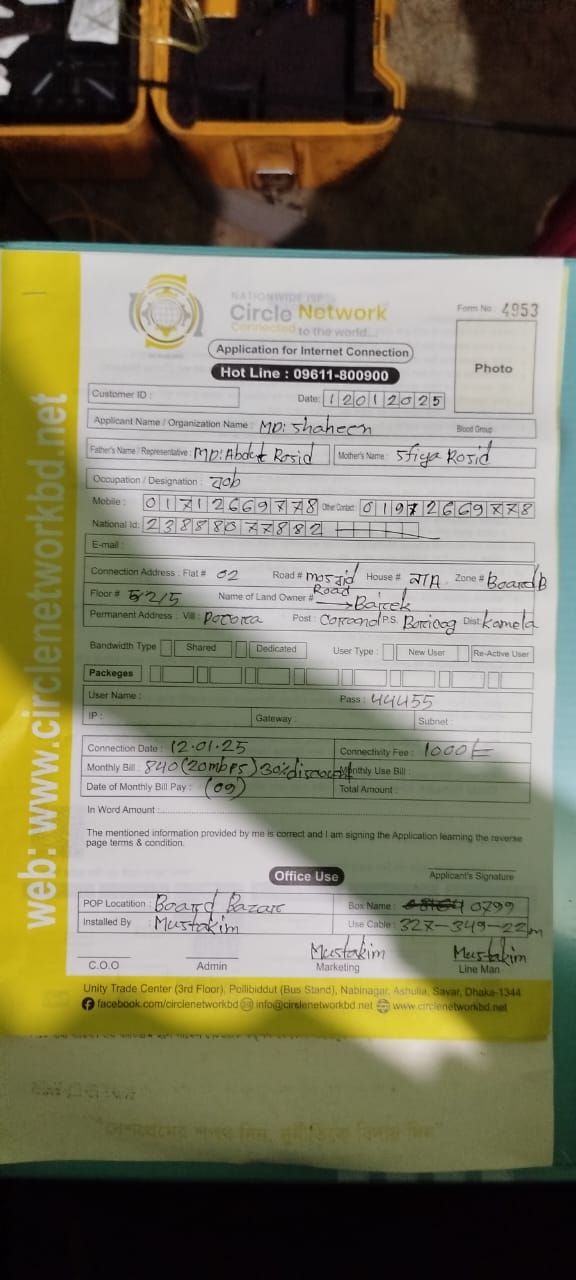 NATIONWIDE ISP
Circle Network
Connected to the world...
Form No : 4953
Application for Internet Connection
Photo
Hot Line : 09611-800900
Customer ID :
Date: 12012025
Applicant Name / Organization Name : MD: Shaheen Blood Group
Father's Name / Representative : MD: Abdul Rosid Mother's Name : Sfiya Rosid
Occupation / Designation : Job
Mobile : 01712669778 Other Contact : 01972669778
National Id: 2388077882
E-mail :
Connection Address : Flat # 02 Road # mosjid Road House # N/A Zone # Board B
Floor # 5/2/5 Name of Land Owner # → Barek
Permanent Address : Vill : Post : P.S. Dist:
Bandwidth Type Shared Dedicated User Type : New User Re-Active User
Packeges
User Name : Pass : 44455
IP : Gateway : Subnet :
Connection Date : 12.01.25 Connectivity Fee : 1000 tk
Monthly Bill : 840 (20mbps) 30% discount Monthly Use Bill :
Date of Monthly Bill Pay : (09) Total Amount :
In Word Amount :
The mentioned information provided by me is correct and I am signing the Application learning the reverse
page terms & condition.
Applicant's Signature
Office Use
POP Locatition : Board Bazar Box Name : 0799
Installed By : Mustakim Use Cable : 327-349-22m
Mustakim Mustakim
C.O.O Admin Marketing Line Man
Unity Trade Center (3rd Floor), Pollibiddut (Bus Stand), Nabinagar, Ashulia, Savar, Dhaka-1344
facebook.com/circlenetworkbd info@cirslenetworkbd.net www.circlenetworkbd.net
web: www.circlenetworkbd.net